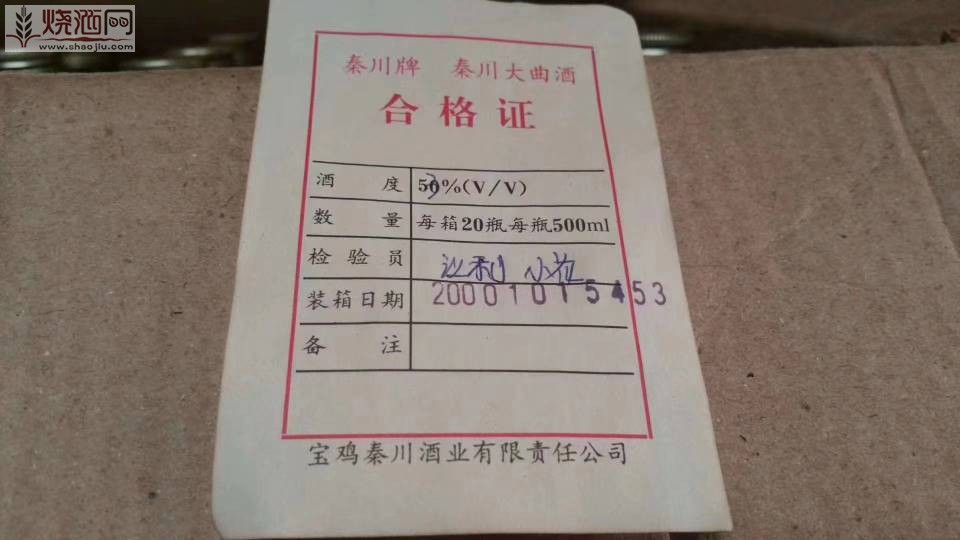 烧酒网
www.shaojiu.com
秦川牌 秦川大曲酒
合格证
酒度 53%(V/V)
数量 每箱20瓶每瓶500ml
检验员
装箱日期 20001015453
备注
宝鸡秦川酒业有限责任公司